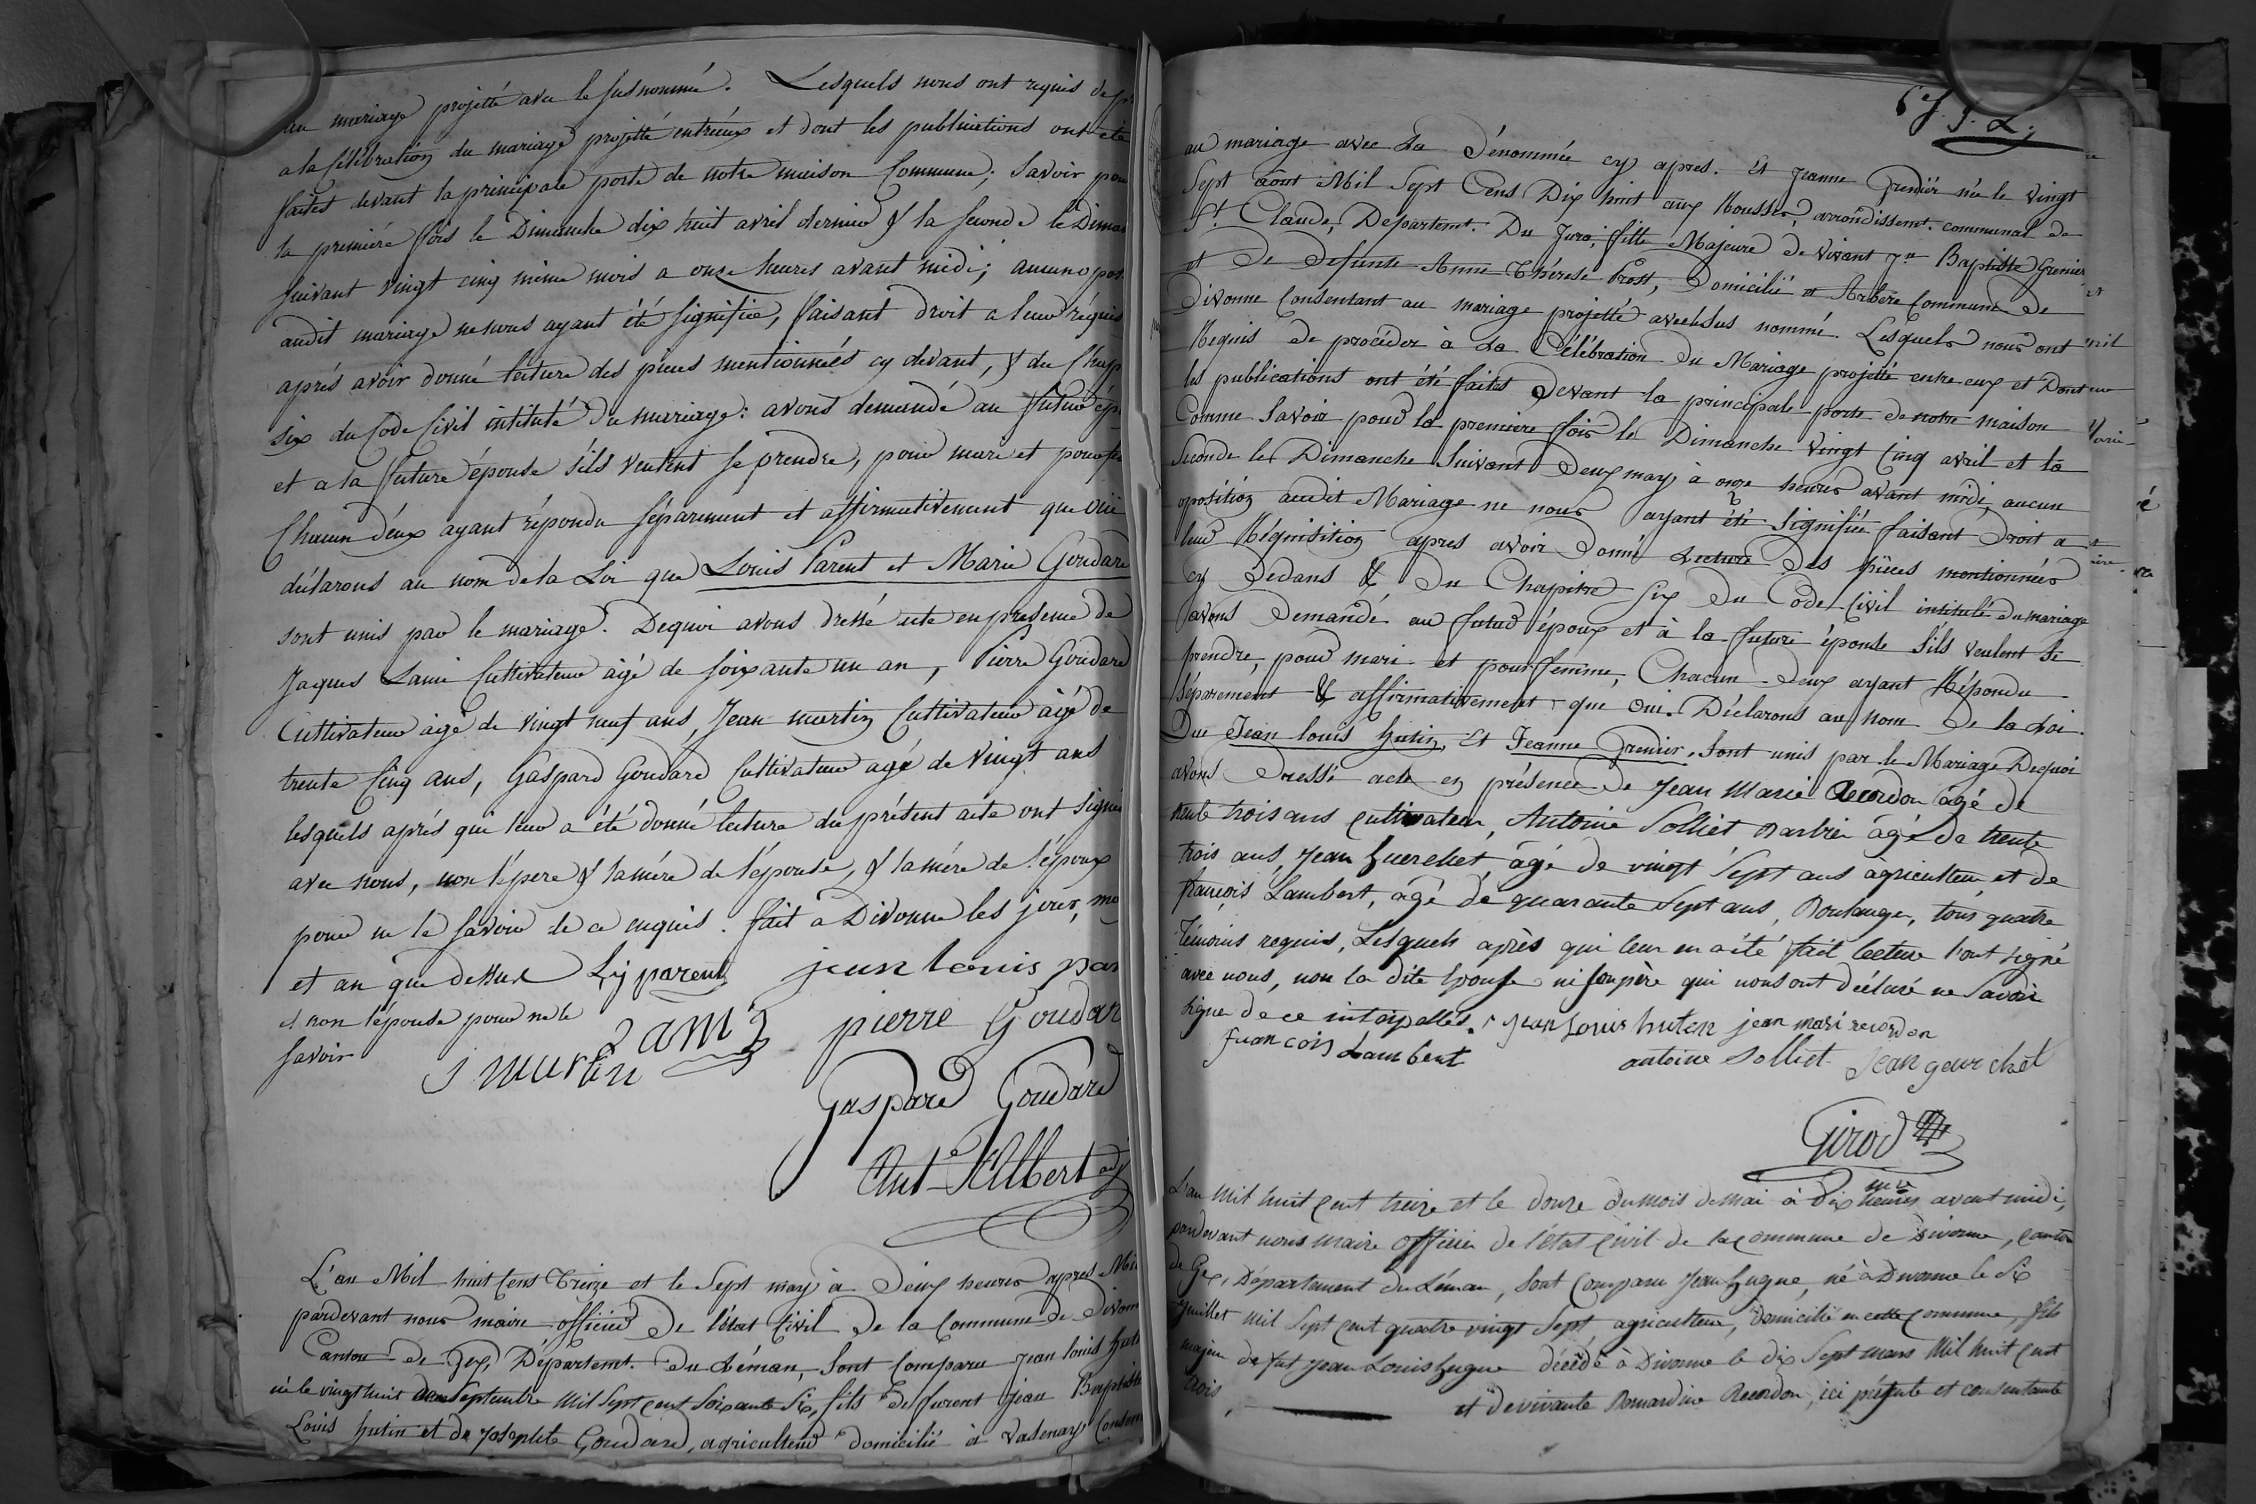 au mariage projetté avec le susnommé. Lesquels nous ont requis de
a la célébration du mariage projetté entréux et dont les publications ont été
faites devant la principale porte de notre maison Commune; Savoir pou
la première fois le Dimanche dix huit avril dernier & la seconde le Diman
suivant vingt cinq même mois a onze heures avant midi; aucune
audit mariage ne nous ayant été signifiée, faisant droit a leur réquis
aprés avoir donné lecture des pieces mentionnées cy devant, & du Chap
six du Code Civil intitulé Du mariage: avons demandé au futur
et a la future épouse s'ils veulent se prendre, pour mari et pour
Chacun d'eux ayant répondu séparement et affirmativement que oui
déclarons au nom de la Loi que Louis Parent et Marie Goudard
sont unis par le mariage. Dequoi avons dressé acte en présence de
Jaques Lami Cultivateur âgé de soixante un an, Pierre Goudard
Cultivateur âgé de vingt neuf ans, Jean martin Cultivateur âgé de
trente Cinq ans, Gaspard Goudard Cultivateur agé de vingt ans
lesquels aprés qui leur a été donné lecture du présent acte ont signé
avec nous, non le pere & la mére de l'épouse, & la mére de l'époux
pour ne le savoir de ce enquis. fait à Divonne les jour, mo
et an que dessus Ly parent jean louis par
et non l'épouse pour ne le
savoir
J martin Lami pierre Goudar
Gaspard Goudard
Ant. Albert adj
L'an Mil huit Cens Treize et le Sept may à Deux heures apres Mi
pardevant nous maire officier De l'état Civil De la Commune de Divonn
Canton de Gex, Départemt. Du Léman, Sont Comparu Jean louis huti
né le vingt huit Septembre Mil Sept cent Soixante Six, fils De furent Jean Baptiste
Louis hutin et de Josephte Goudard, agriculteur Domicilié à Vesenay Consen
6e f. J. L.
au mariage avec La Dénommée cy apres. Et Jeanne Grenier née le vingt
Sept août Mil Sept Cens Dix huit aux Rousses, arrondissemt. communal de
St. Claude, Departemt. Du Jura, fille Majeure de vivant Jn. Baptiste Grenier
et De defunte Anne Thérese Prost, Domicilié et Arbere Commune De
Divonne Consentant au mariage projetté avec le Sus nommé. Lesquels nous ont
Requis de procéder à La Célébration Du Mariage projetté entre eux et Dont
les publications ont été faites Devant la principale porte de notre maison
Comme Savoir pour la premiere fois le Dimanche vingt Cinq avril et la
Seconde le Dimanche Suivant Deux may à onze heures avant midi, aucun
oposition audit Mariage ne nous ayant été Signifiée faisant Droit a
leur Réquisition apres avoir donné Lecture Des pieces mentionnées
cy Dedans & Du Chapitre Six Du Code Civil intitulé Du mariage
avons Demandé au futur époux et à la future épouse S'ils veulent Se
prendre, pour mari et pour femme, Chacun d'eux ayant Répondu
Séparement & affirmativement que oui. Déclarons au Nom De la Loi.
Que Jean louis hutin, Et Jeanne Grenier, Sont unis par le Mariage Dequoi
avons Dressé acte en présence De Jean Marie Recordon âgé de
trente trois ans cultivateur, Antoine Solliet Barbier âgé de trente
trois ans, Jean Guerchet âgé de vingt Sept ans agriculteur et de
françois Lambert, âgé de quarante Sept ans, Boulanger, tous quatre
Témoins requis, Lesquels après qui leur en a été fait lecture l'ont signé
avec nous, non la dite Epouse ni son père qui nous ont déclaré ne Savoir
Signer de ce interpellés. Jean Louis huten jean mari recordon
francois Lambert antoine Solliet Jean geurchet
Girod mre
L'an Mil huit cent treize et le douze du mois de mai à dix heures avant midi,
pardevant nous Maire officier de l'état civil de la commune de Divonne, canton
de Gex, Département du Léman, Sont Comparu Jean hugue, né à Divonne le Six
Juillet Mil Sept cent quatre vingt Sept agriculteur, Domicilié en cette Commune, fils
majeur de fut Jean Louis hugue décédé à Divonne le dix Sept mars Mil huit cent
trois, et de vivante Bernardine Recordon, ici présente et consentante